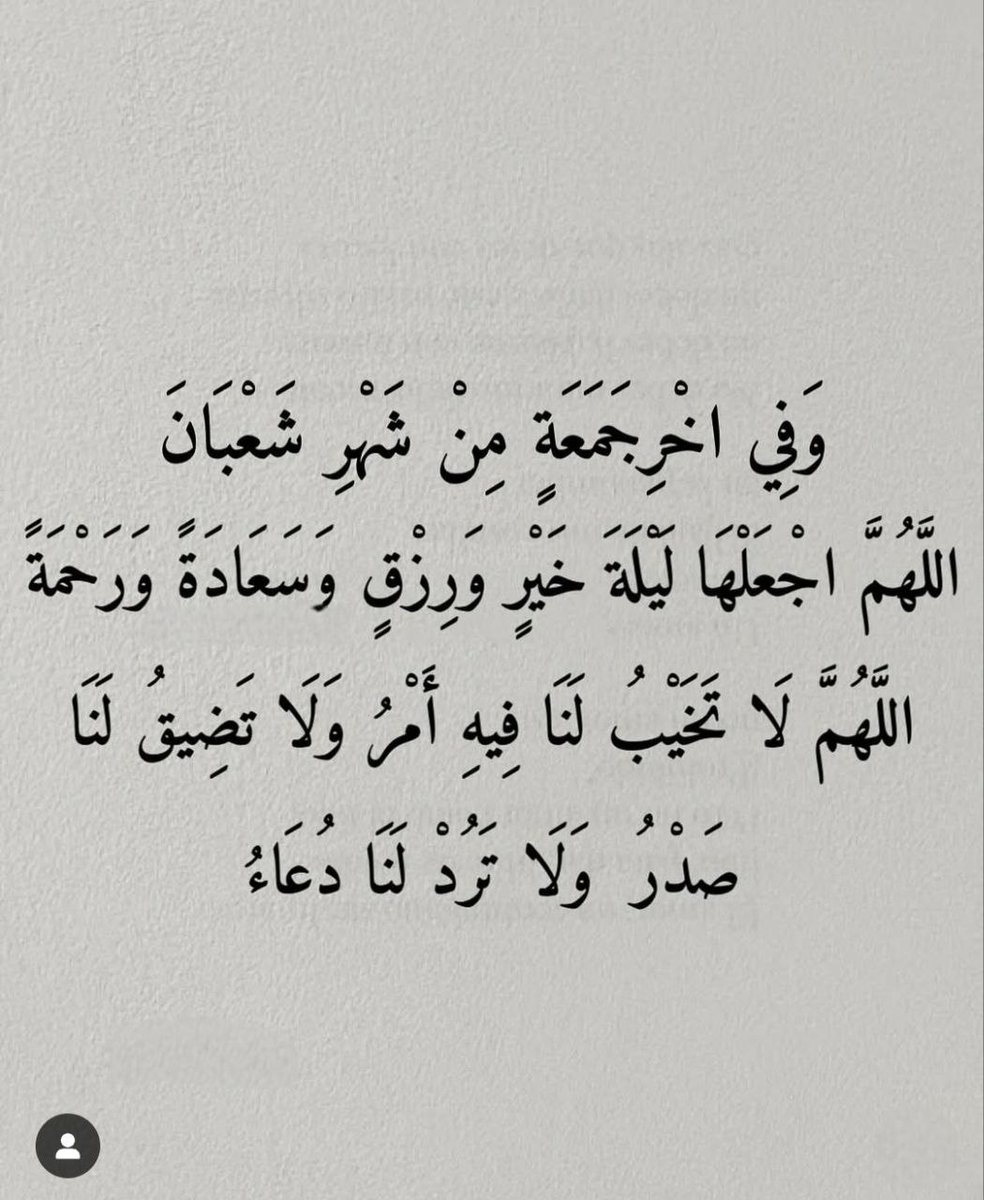 وَفِي اخْرِجَمَعَةٍ مِنْ شَهْرِ شَعْبَانَ
اللَّهُمَّ اجْعَلْهَا لَيْلَةَ خَيْرٍ وَرِزْقٍ وَسَعَادَةً وَرَحْمَةً
اللَّهُمَّ لَا تَخَيْبُ لَنَا فِيهِ أَمْرُ وَلَا تَضِيقُ لَنَا
صَدْرُ وَلَا تَرُدْ لَنَا دُعَاءُ